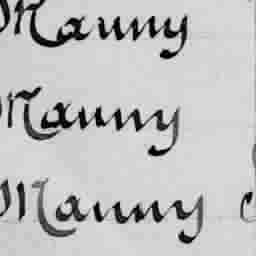 Manny
Manny
Manny